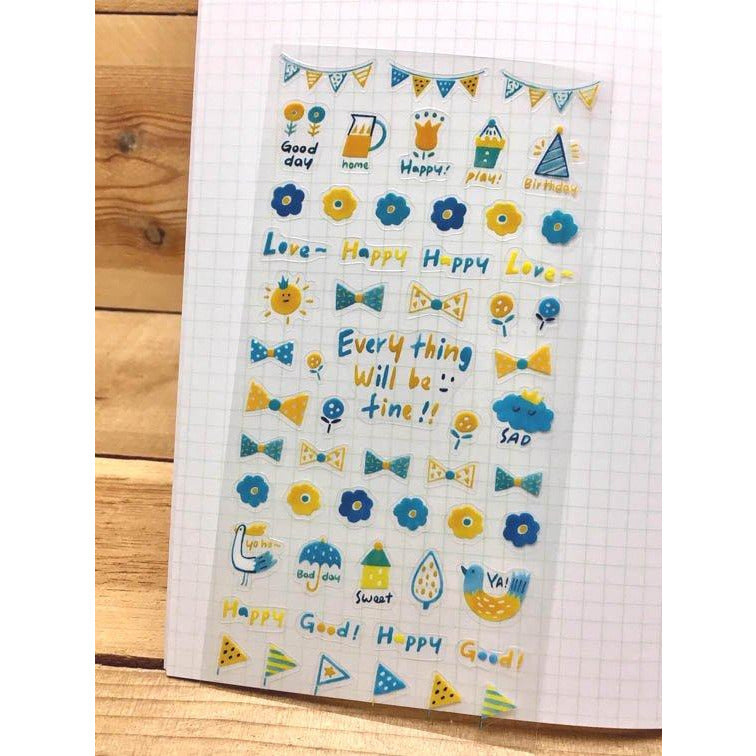 Good
day
home
Happy!
play!
Birthday
Love~
Happy
Happy
Love~
Every thing
Will be
fine!!
SAD
yoho~
Bad day
Sweet
YA!!!!
Happy
Good!
Happy
Good!